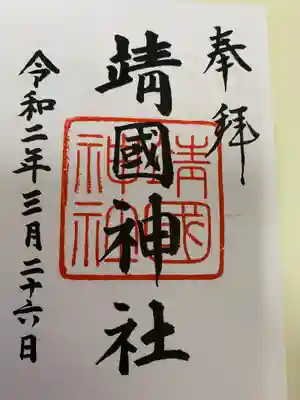 奉拝
靖國神社
令和二年三月二十六日
靖國
神社